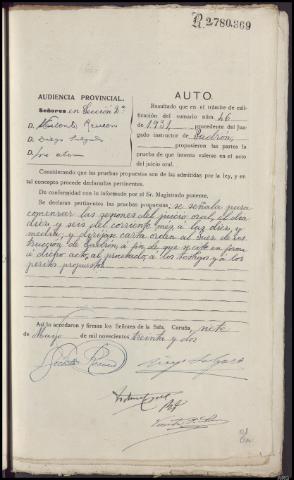 R.2780.369
AUDIENCIA PROVINCIAL.
Señores en Sección 2ª
D.
D. Diego Salgado
D. José
AUTO.
Resultando que en el trámite de cali-
ficación del sumario núm. 26
de 1931 procedente del Juz-
gado instructor de Padrón,
propusieron las partes la
prueba de que intentan valerse en el acto
del juicio oral.
Considerando que las pruebas propuestas son de las admitidas por la ley, y en
tal concepto procede declararlas pertinentes.
De conformidad con lo informado por el Sr. Magistrado ponente,
Se declaran pertinentes las pruebas propuestas; se señala para
comenzar las sesiones del juicio oral, el día
diez y seis del corriente mes, a las diez y
media, y diríjase carta orden al Juez de ins-
trucción de Padrón a fin de que se cite en forma
a dicho acto, al procesado, a los testigos y a los
peritos propuestos.
Así lo acordaron y firman los Señores de la Sala. Coruña, siete
de Mayo de mil novecientos treinta y dos
Diego Salgado